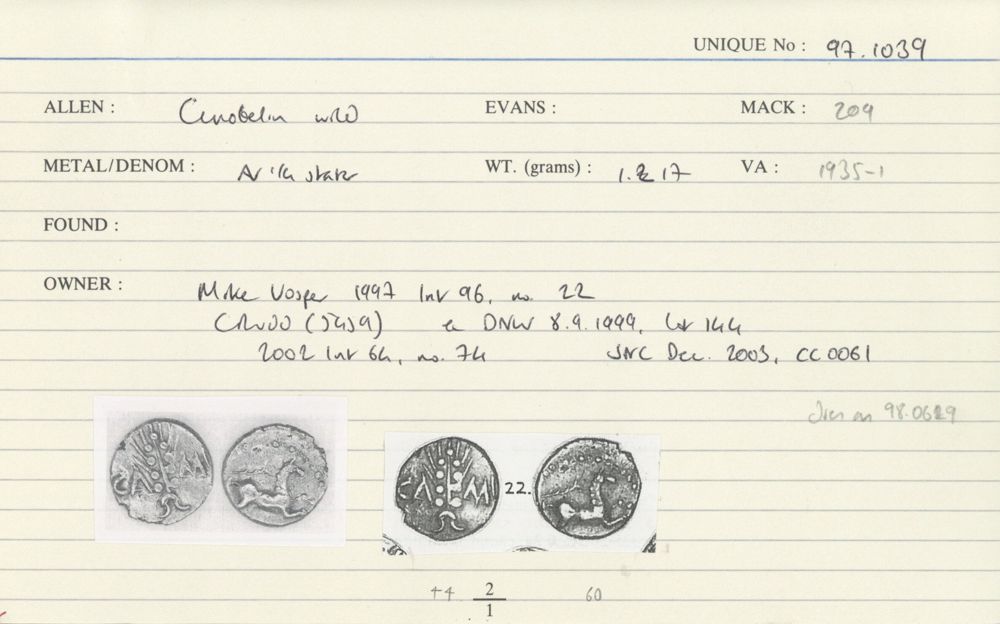 UNIQUE No : 97.1039
ALLEN : Cunobelin wild EVANS : MACK : 209
METAL/DENOM : AV 1/4 stater WT. (grams) : 1.17 VA : 1935-1
FOUND :
OWNER : Mike Vosper 1997 Inv 96, no. 22
CRUDD (5459) ex DNW 8.9.1999, lot 144
2002 Inv 64, no. 74 SNC Dec. 2003, CC0061
98.0629
CA M
CA M 22.
+4 2 60
1